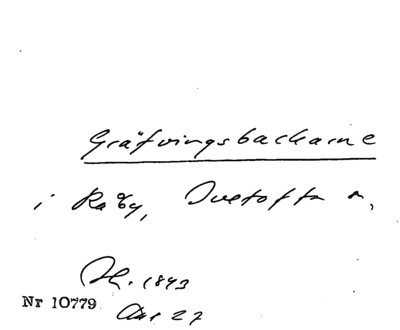 Gräfvingsbackarne
i Råby, Tvetofta s,
Sk. 1843
Nr 10779
Akt 27